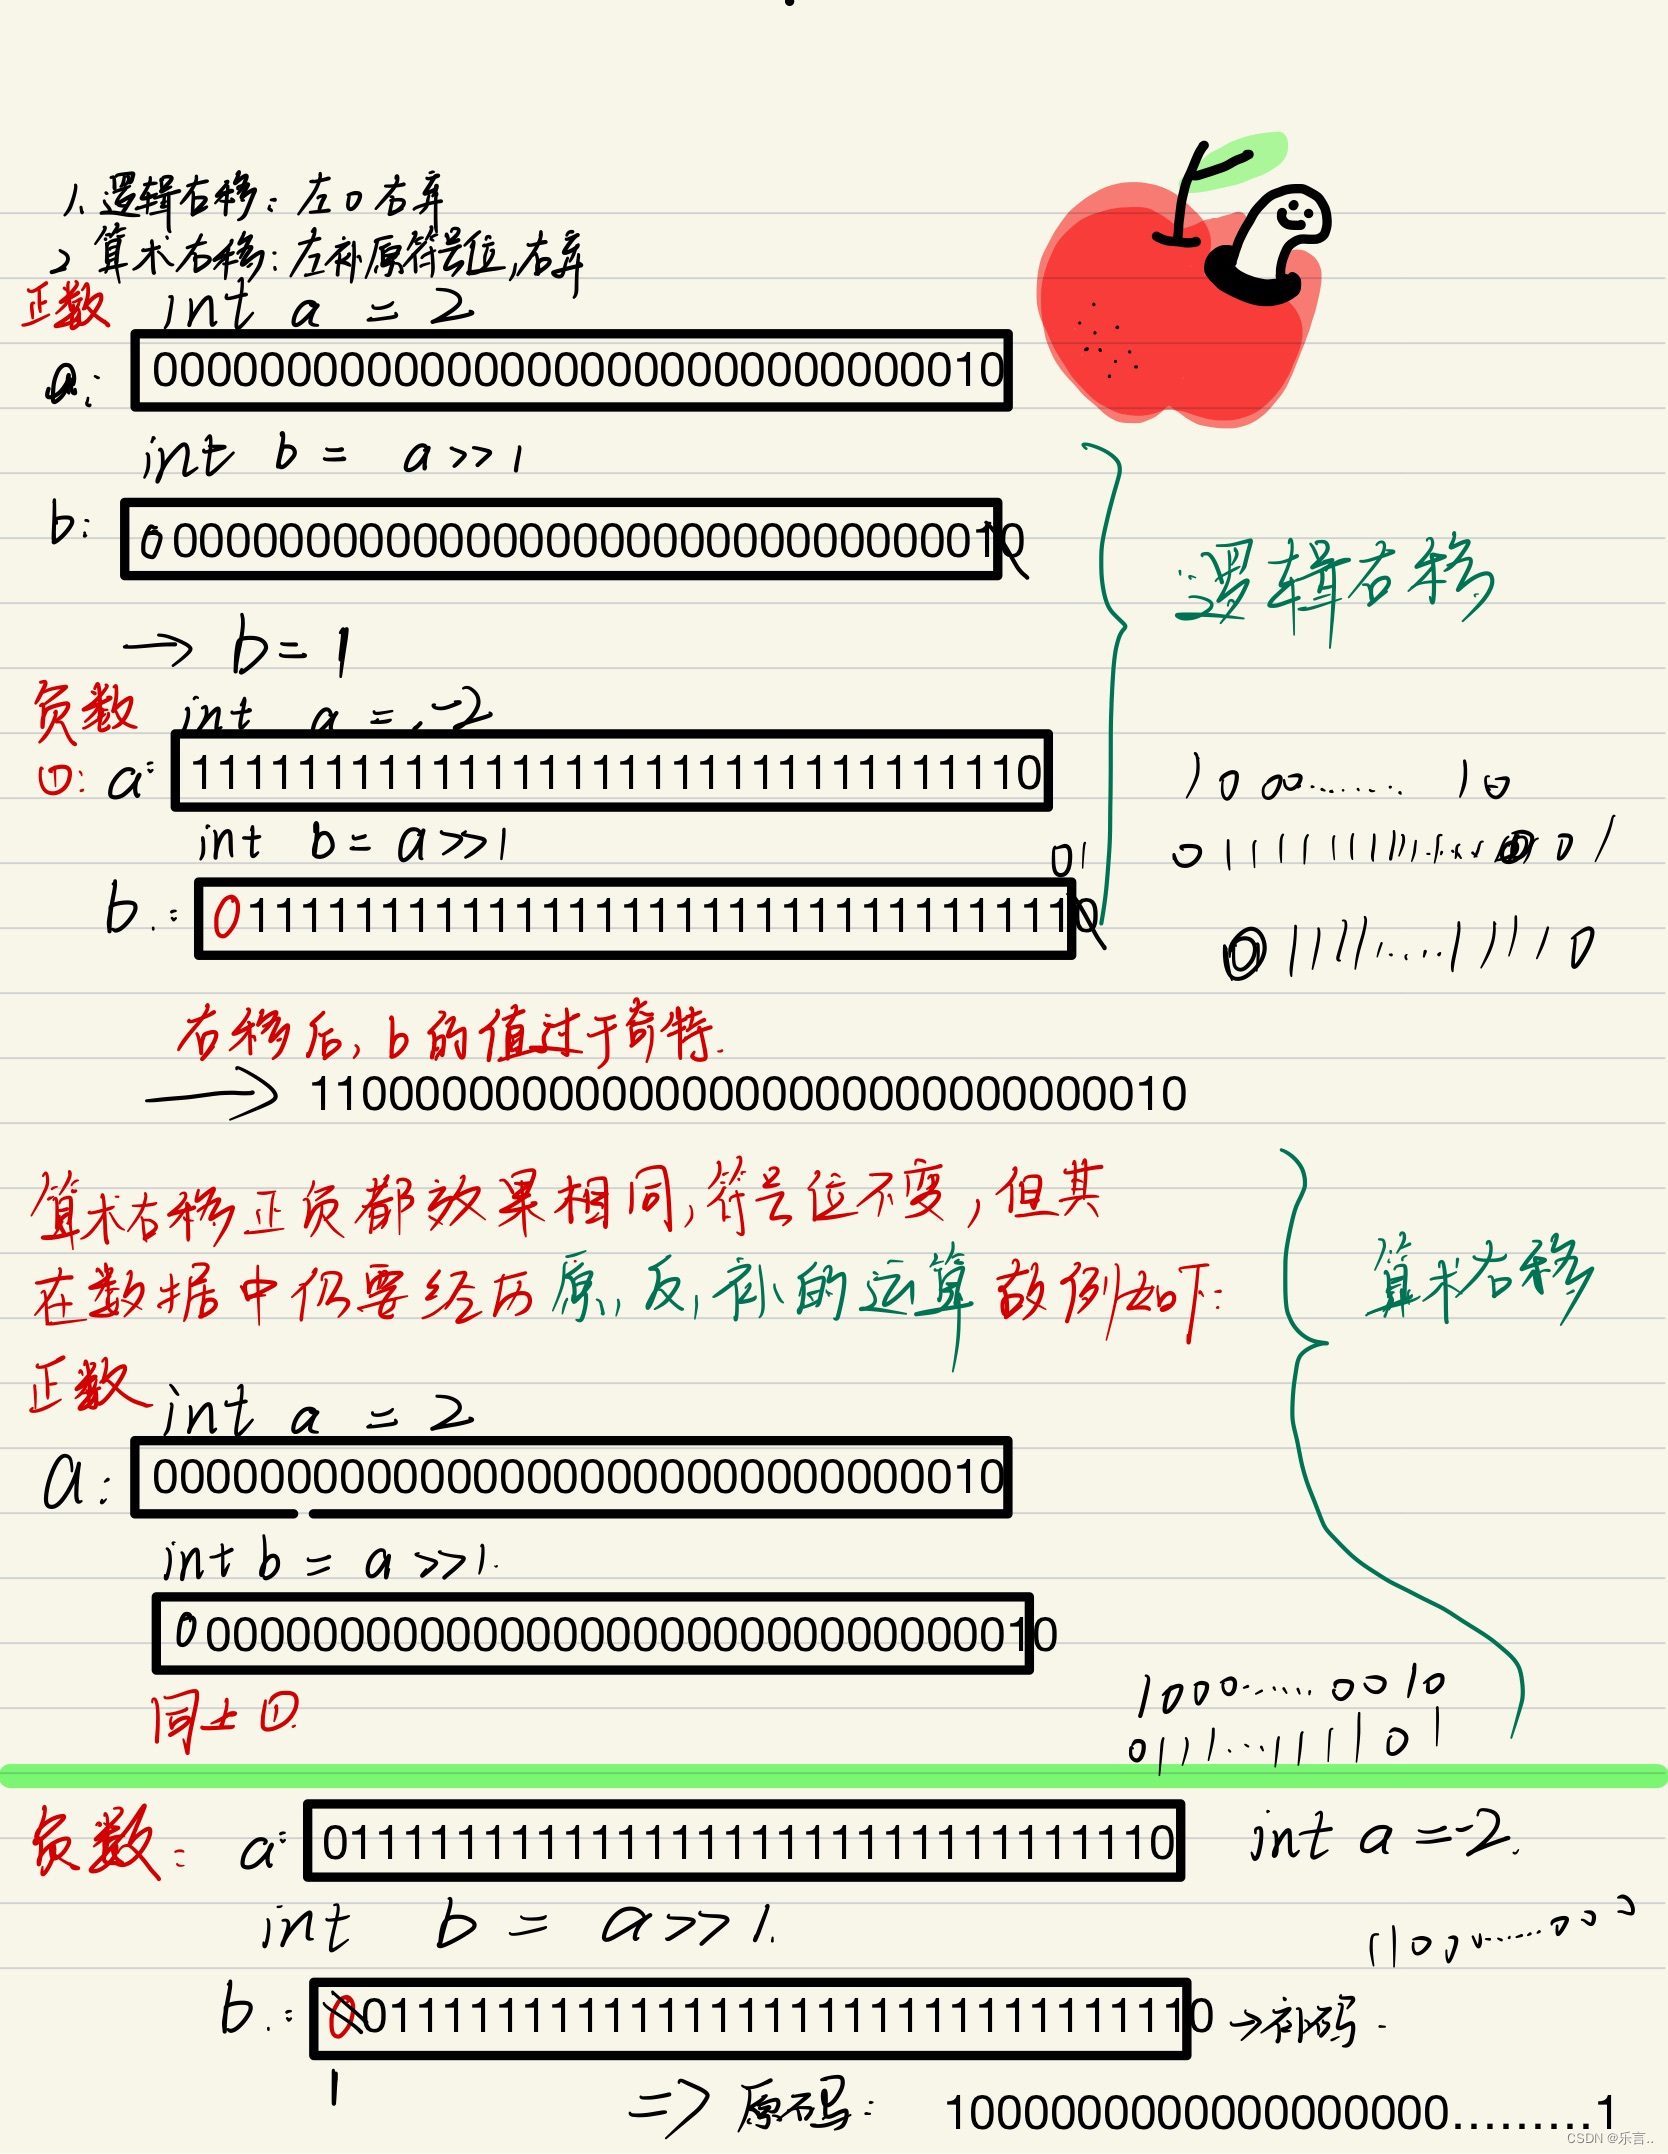 1. 逻辑右移：左0右弃
2 算术右移：左补原符号位，右弃
正数 int a = 2
a: 00000000000000000000000000000010
int b = a>>1
b: 0 00000000000000000000000000000010
→ b=1
负数 int a = -2
①: a: 11111111111111111111111111111110
int b = a>>1
b.: 0 11111111111111111111111111111110
01
逻辑右移
1 0 00........ 10
0 111111111........ 0 01
0 11111.....11110
右移后，b的值过于奇特.
→ 110000000000000000000000000000010
算术右移正负都效果相同，符号位不变，但其
在数据中仍要经历原，反，补的运算 故例如下：
算术右移
正数 int a = 2
a: 00000000000000000000000000000010
int b = a>>1.
0 00000000000000000000000000000010
同上①.
1000......0010
0111...1111101
负数: a: 01111111111111111111111111111110 int a =-2.
int b = a>>1.
1100........000
b.: 0 01111111111111111111111111111110 →补码.
1
=> 原码: 1000000000000000000.........1
CSDN @乐言..